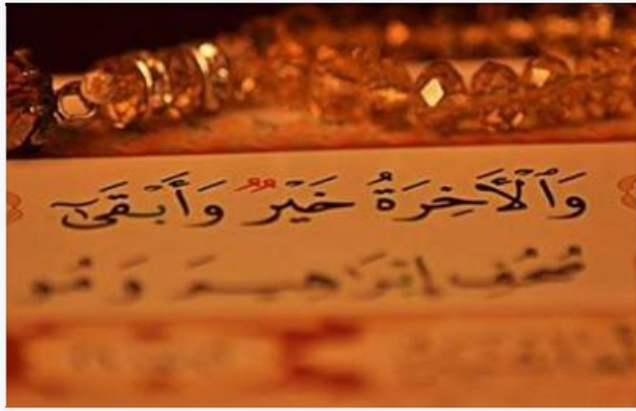 وَٱلْأَخِرَةُ خَيْرٌ وَأَبْقَىٰٓ
صُحُفِ إِبْرَاهِيمَ وَمُو